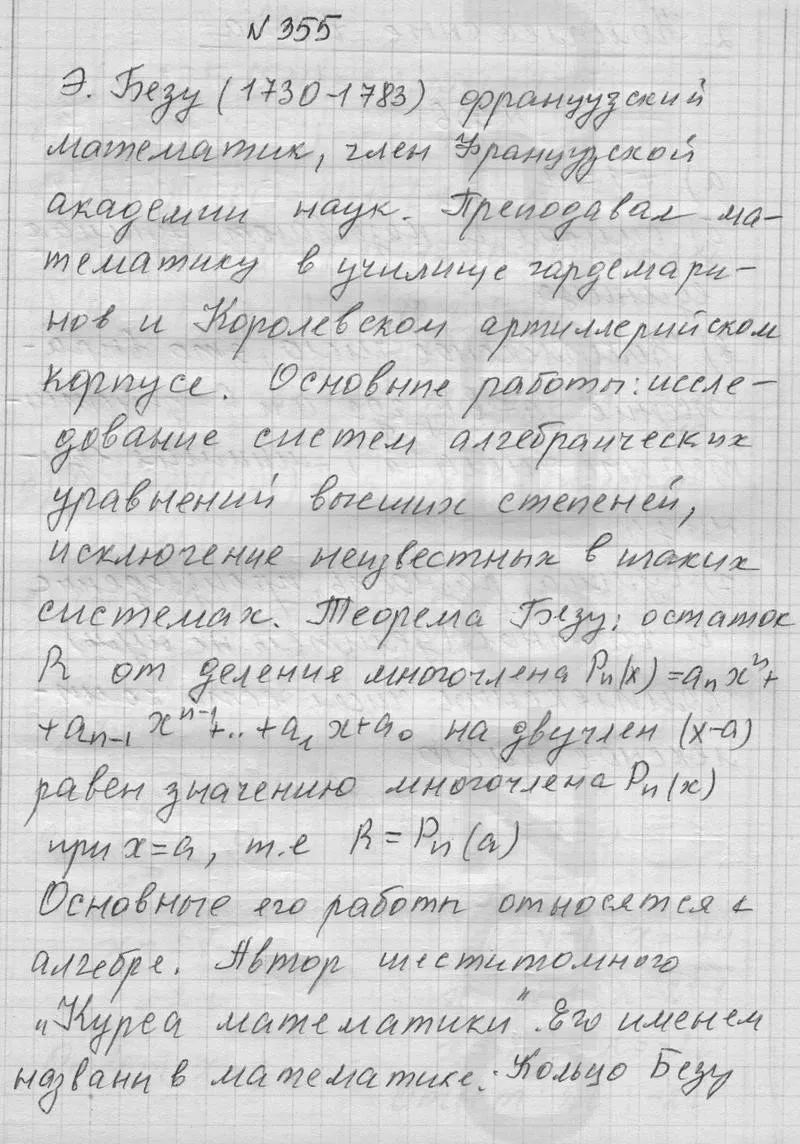 № 355
Э. Безу (1730-1783) французский
математик, член Французской
академии наук. Преподавал ма-
тематику в училище гардемари-
нов и Королевском артиллерийском
корпусе. Основные работы: иссле-
дование систем алгебраических
уравнений высших степеней,
исключение неизвестных в таких
системах. Теорема Безу: остаток
R от деления многочлена Pₙ(x) = aₙxⁿ +
+ aₙ₋₁ xⁿ⁻¹ + .. + a₁ x + a₀ на двучлен (x-a)
равен значению многочлена Pₙ(x)
при x = a, т.е R = Pₙ(a)
Основные его работы относятся к
алгебре. Автор шеститомного
„Курса математики". Его именем
названы в математике: Кольцо Безу